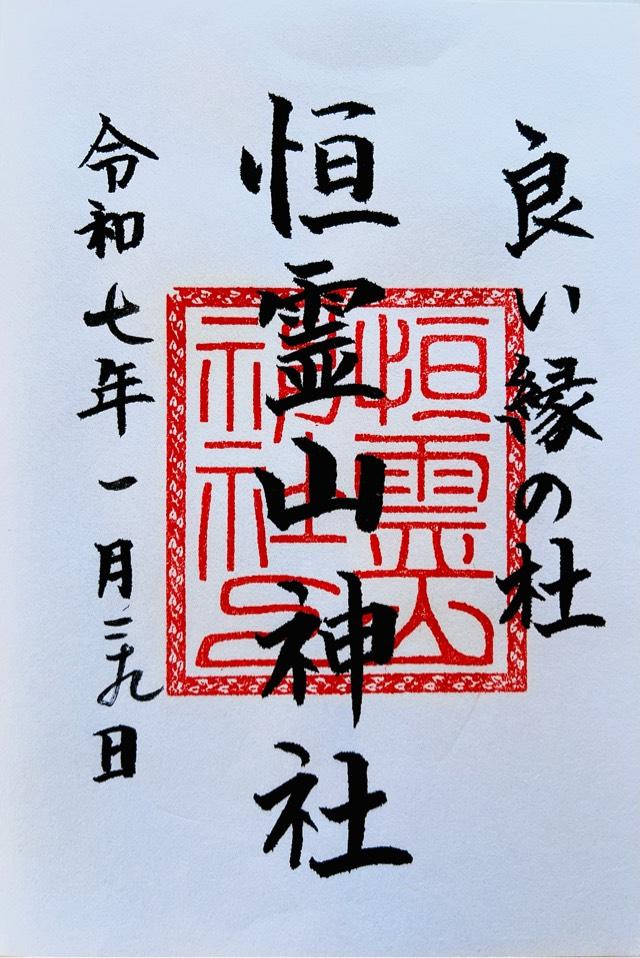 良い縁の杜
恒霊山神社
令和七年一月二十九日
恒霊山
神社